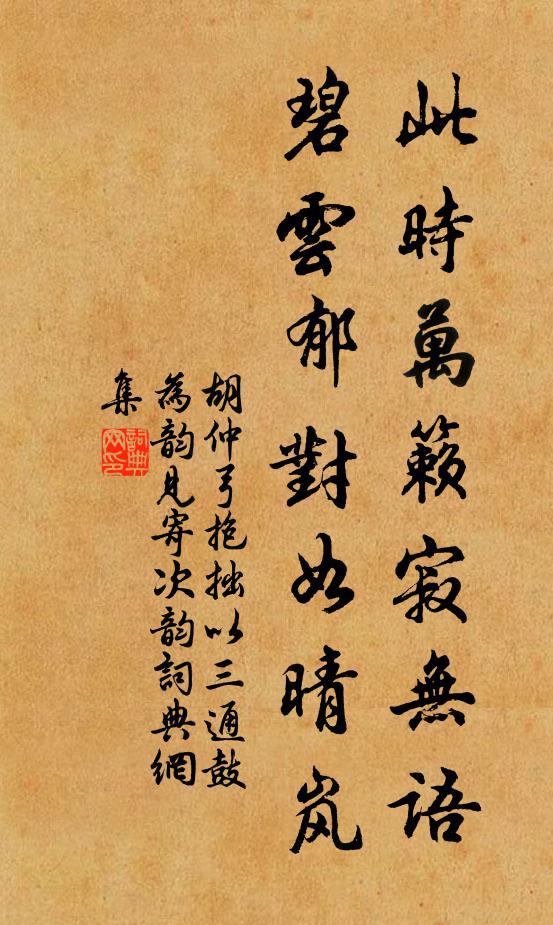 此時萬籟寂無語
碧雲郁對如晴岚
胡仲弓抱拙以三通鼓
為韵見寄次韵詞典網
集
詞典
网印